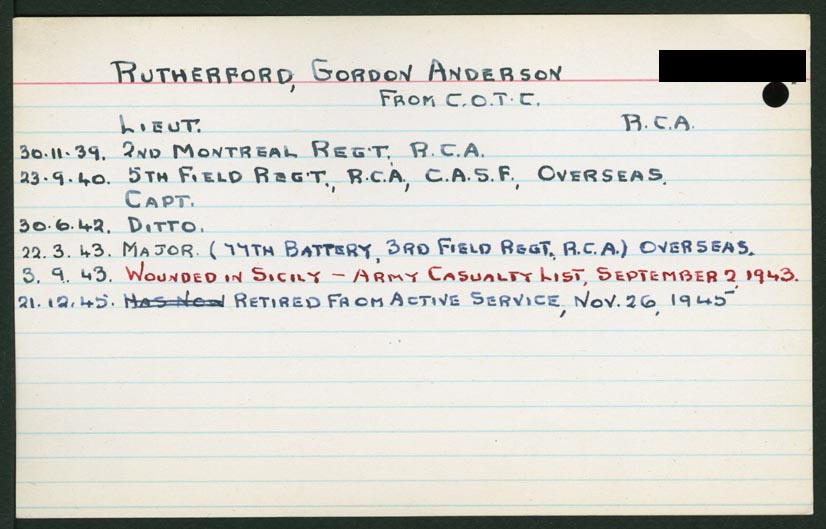 RUTHERFORD, GORDON ANDERSON
FROM C.O.T.C.
LIEUT. R.C.A.
30.11.39. 2ND MONTREAL REGT, R.C.A.
23.9.40. 5TH FIELD REGT., R.C.A, C.A.S.F., OVERSEAS.
CAPT.
30.6.42. DITTO.
22.3.43. MAJOR. (77TH BATTERY, 3RD FIELD REGT, R.C.A.) OVERSEAS.
3.9.43. WOUNDED IN SICILY - ARMY CASUALTY LIST, SEPTEMBER 2, 1943.
21.12.45. HAS NOW RETIRED FROM ACTIVE SERVICE, NOV. 26, 1945